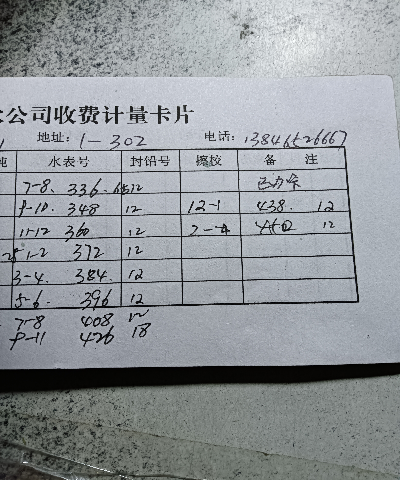 公司收费计量卡片
地址: 1-302 电话: 13846526667
吨 水表号 封铅号 擦校 备 注
7-8. 336. 12
9-10. 348 12 12-1 438. 12
11-12 360 12 12
1-2 372 12
3-4. 384 12
5-6. 396 12
7-8 408 12
9-11 426 18